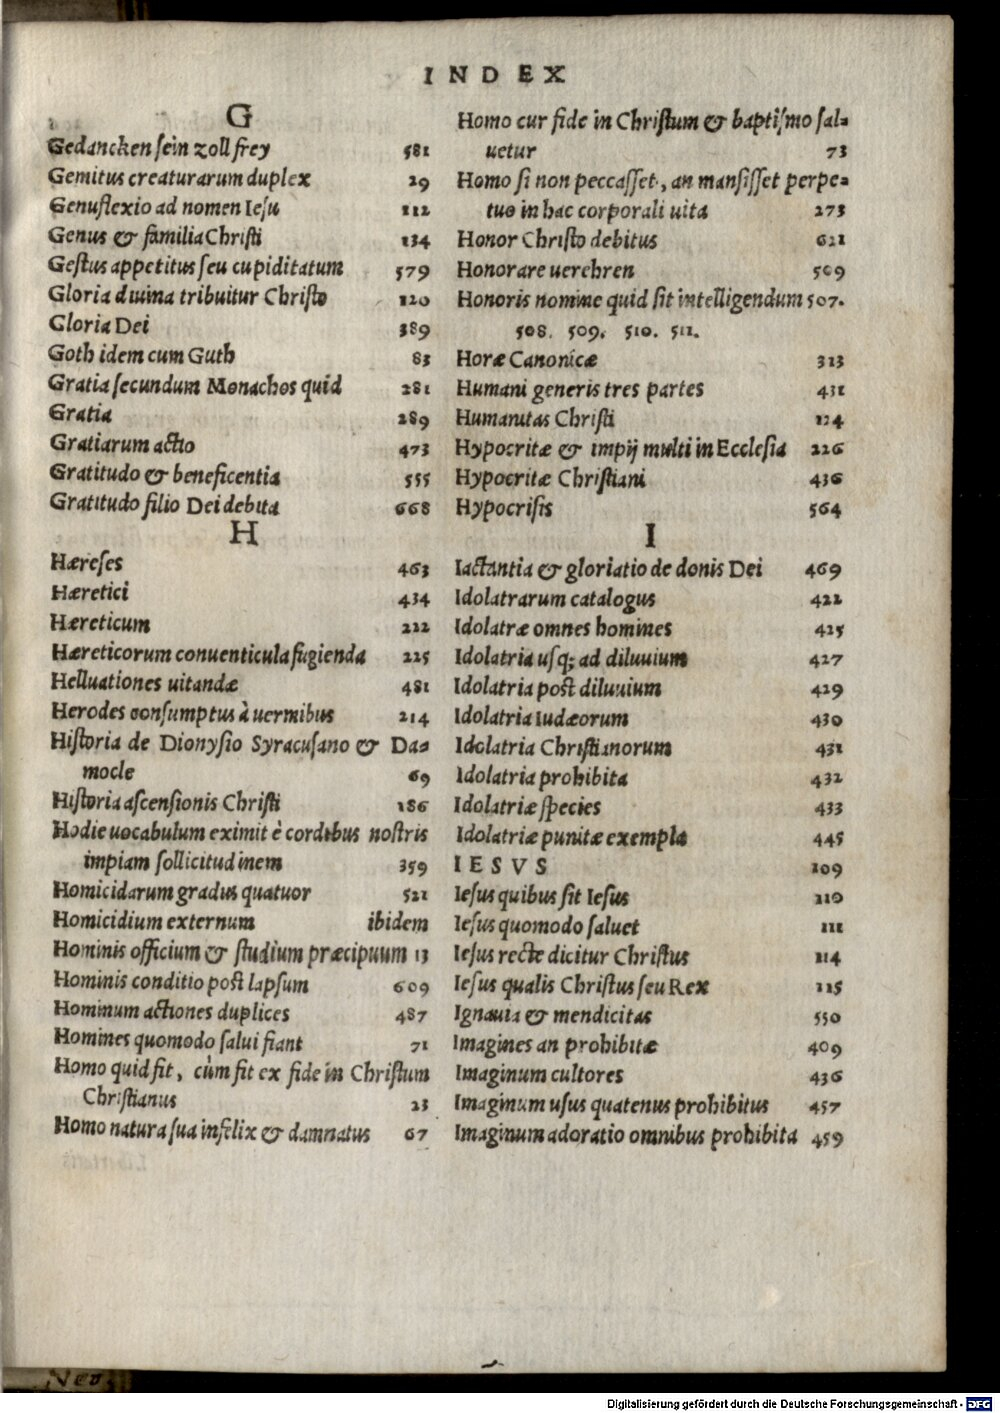 INDEX
G
Gedancken sein zoll frey 581
Gemitus creaturarum duplex 29
Genuflexio ad nomen Iesu 112
Genus & familia Christi 134
Gestus appetitus seu cupiditatum 579
Gloria diuina tribuitur Christo 120
Gloria Dei 389
Goth idem cum Guth 83
Gratia secundum Monachos quid 281
Gratia 289
Gratiarum actio 473
Gratitudo & beneficentia 555
Gratitudo filio Dei debita 668
H
Hæreses 463
Hæretici 434
Hæreticum 222
Hæreticorum conuenticula fugienda 225
Helluationes uitandæ 481
Herodes consumptus à uermibus 214
Historia de Dionysio Syracusano & Da=
mocle 69
Historia ascensionis Christi 186
Hodie uocabulum eximit è cordibus nostris
impiam sollicitudinem 359
Homicidarum gradus quatuor 521
Homicidium externum ibidem
Hominis officium & studium præcipuum 13
Hominis conditio post lapsum 609
Hominum actiones duplices 487
Homines quomodo salui fiant 71
Homo quid sit, cùm sit ex fide in Christum
Christianus 23
Homo natura sua infelix & damnatus 67
Homo cur fide in Christum & baptismo sal=
uetur 73
Homo si non peccasset, an mansisset perpe=
tuo in hac corporali uita 273
Honor Christo debitus 621
Honorare uerehren 509
Honoris nomine quid sit intelligendum 507.
508. 509. 510. 511.
Horæ Canonicæ 313
Humani generis tres partes 431
Humanitas Christi 124
Hypocritæ & impij multi in Ecclesia 226
Hypocritæ Christiani 436
Hypocrisis 564
I
Iactantia & gloriatio de donis Dei 469
Idolatrarum catalogus 422
Idolatræ omnes homines 425
Idolatria usq; ad diluuium 427
Idolatria post diluuium 429
Idolatria Iudæorum 430
Idolatria Christianorum 431
Idolatria prohibita 432
Idolatriæ species 433
Idolatriæ punitæ exempla 445
IESVS 109
Iesus quibus sit Iesus 110
Iesus quomodo saluet 111
Iesus recte dicitur Christus 114
Iesus qualis Christus seu Rex 115
Ignauia & mendicitas 550
Imagines an prohibitæ 409
Imaginum cultores 436
Imaginum usus quatenus prohibitus 457
Imaginum adoratio omnibus prohibita 459
Digitalisierung gefördert durch die Deutsche Forschungsgemeinschaft - DFG